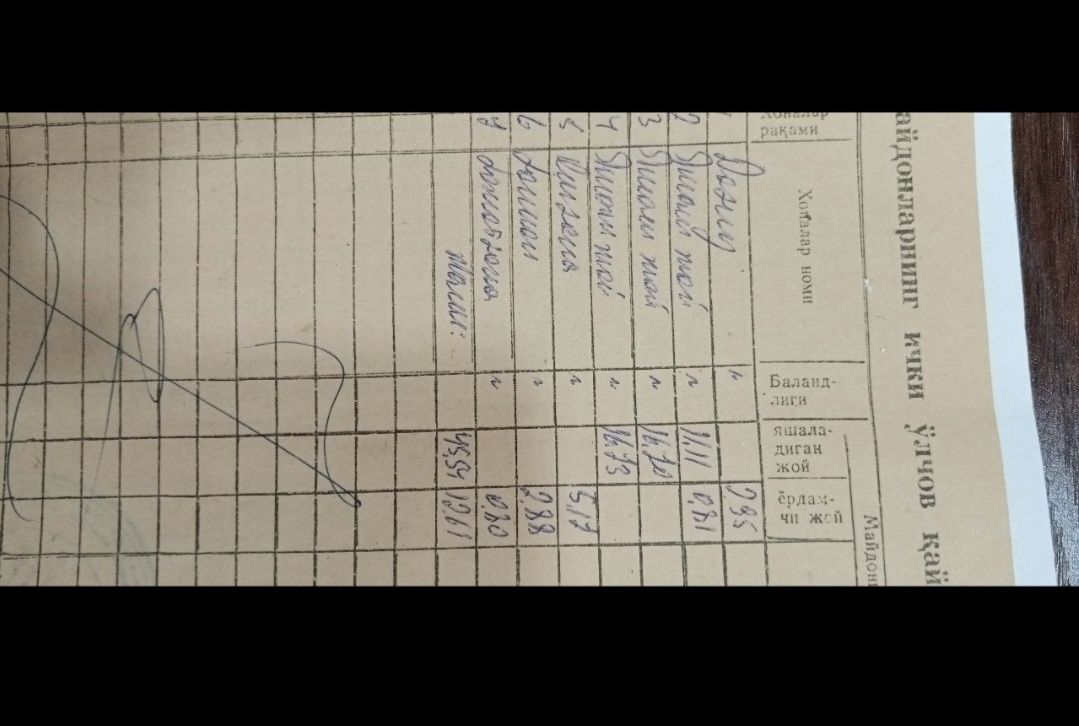 айдонларнинг ички ўлчов қай
Хоналар рақами Хоналар номи Баланд-лиги яшала-диган жой ёрдам-чи жой Майдони
Дахлиз " 2,95
2 Яшаш жой " 11,11 0,81
3 Яшаш жой " 16,70
4 Яшаш жой " 16,73
5 Ошхона " 5,17
6 " 2,88
7 " 0,80
Жами: 45,54 12,61